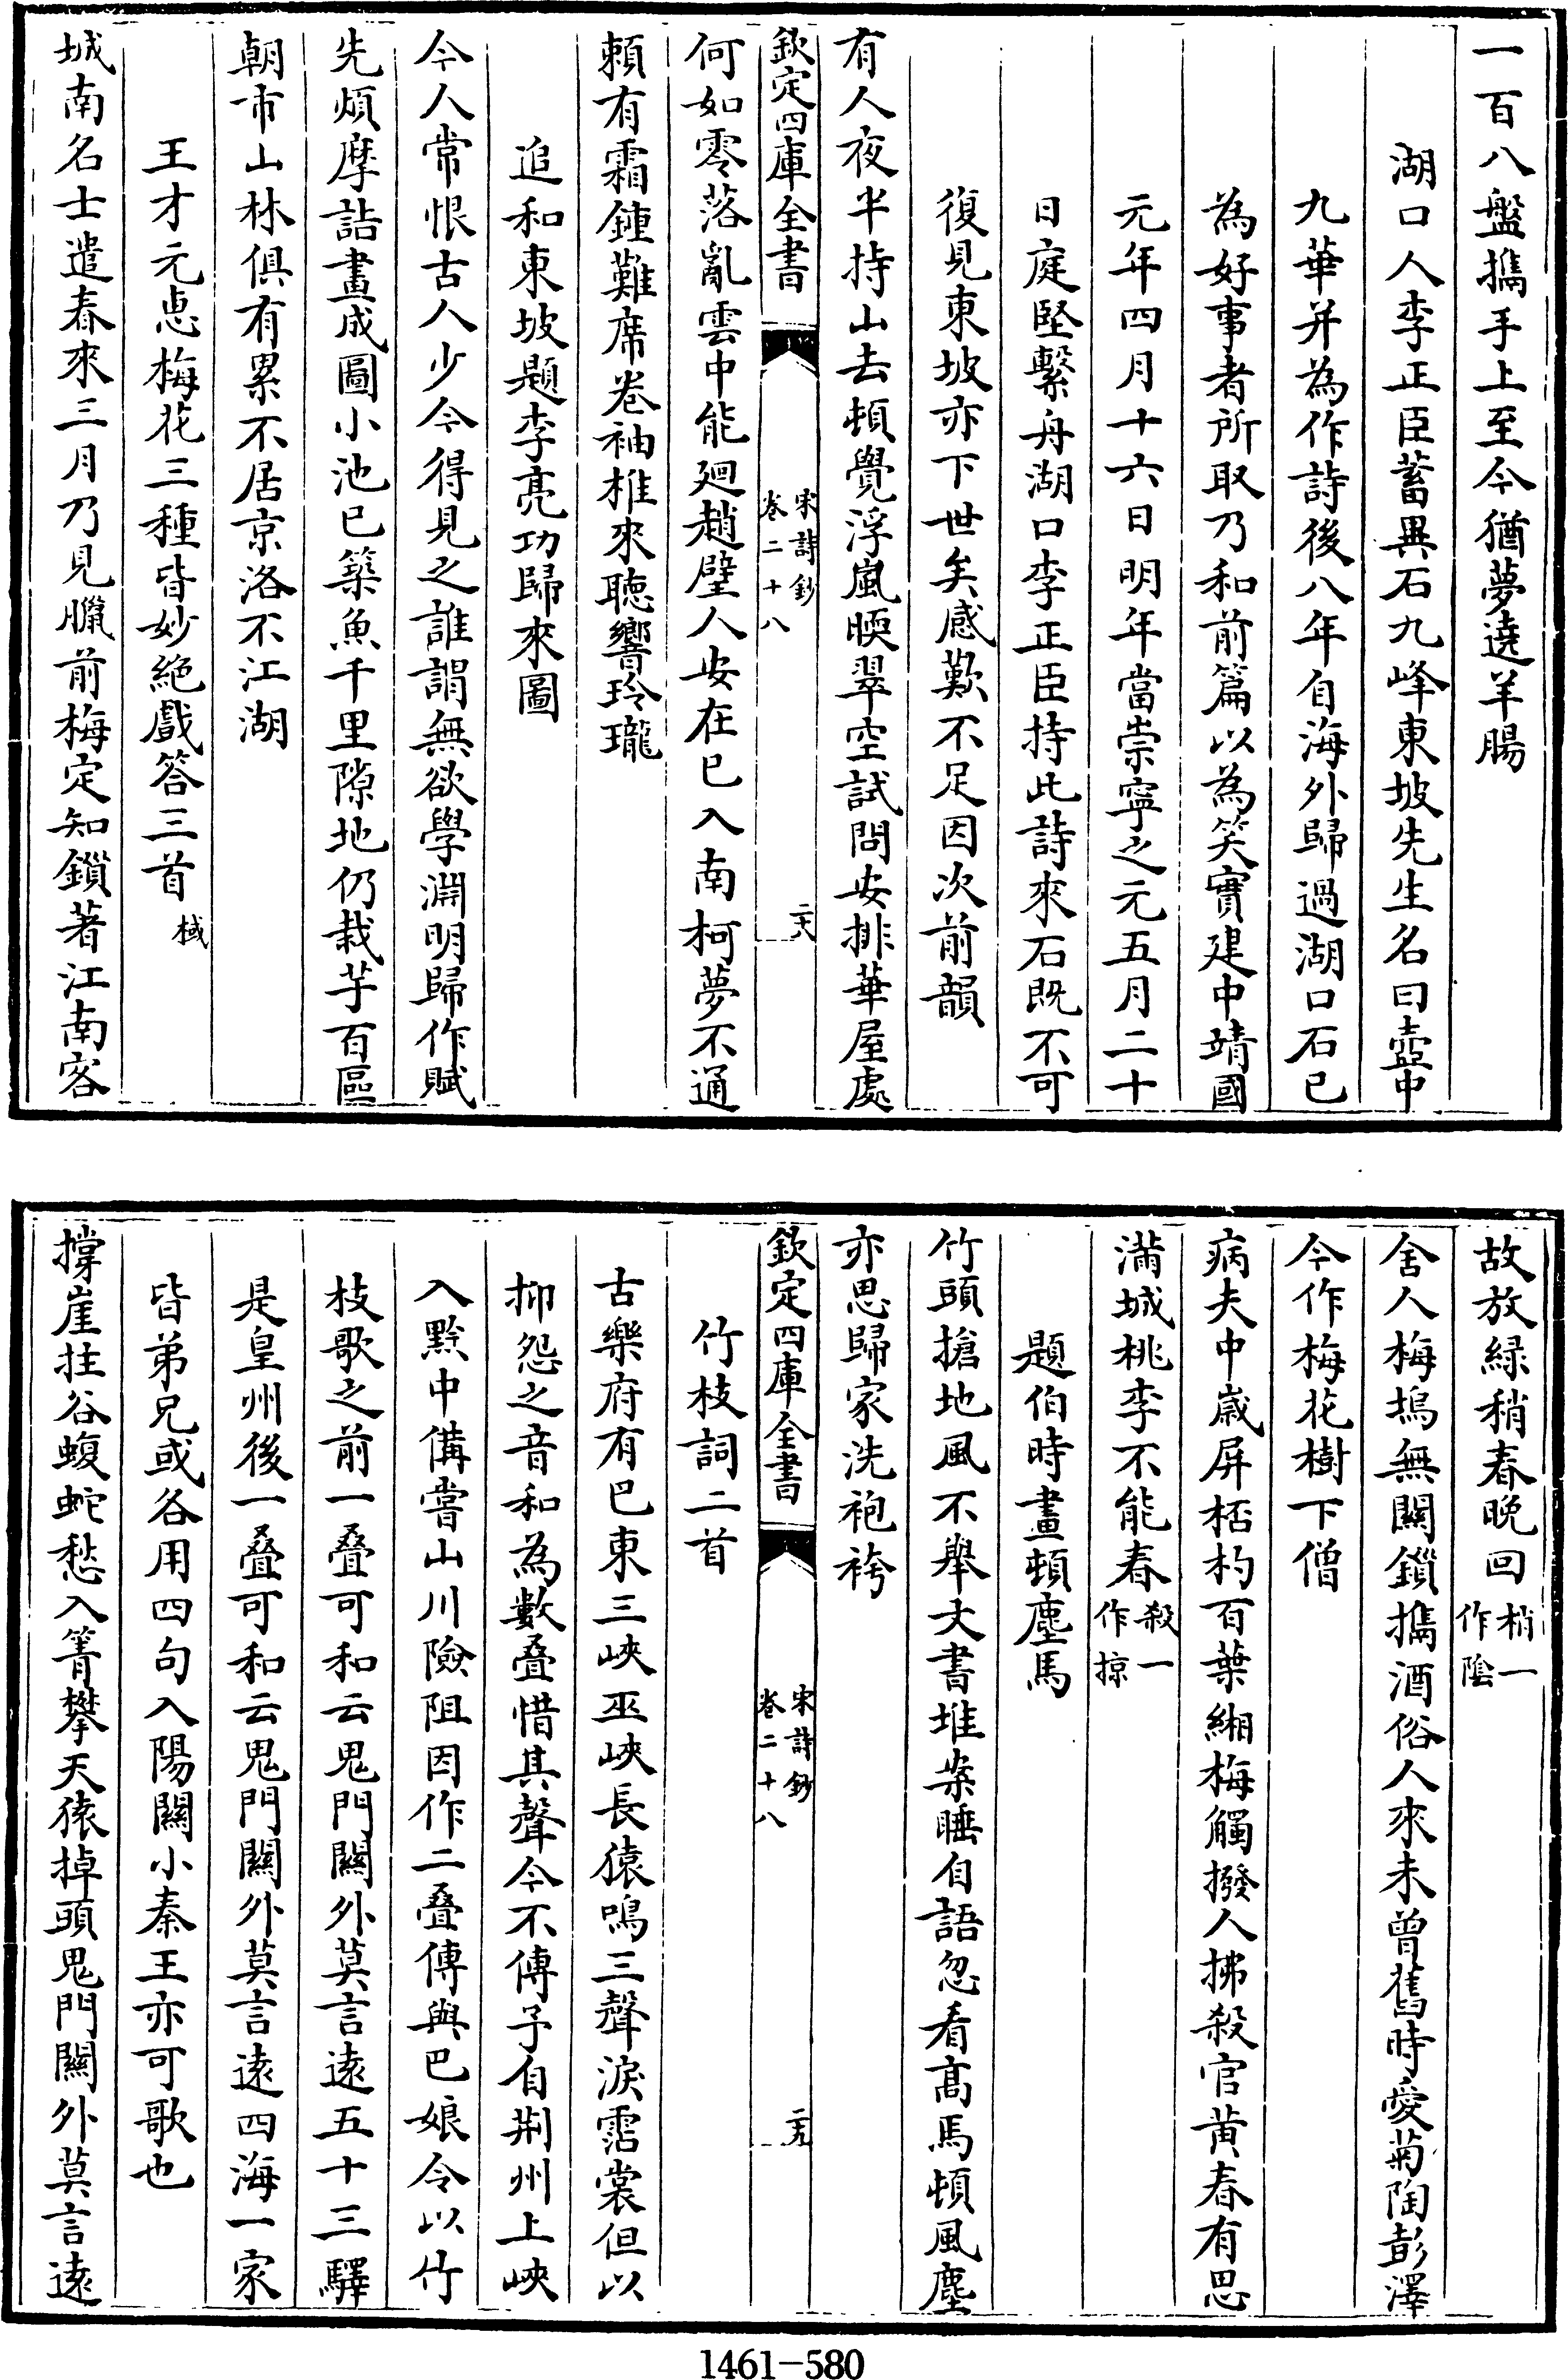 一百八盤攜手上至今猶夢遶羊腸
湖口人李正臣蓄異石九峰東坡先生名曰壺中
九華并為作詩後八年自海外歸過湖口石已
為好事者所取乃和前篇以為笑實建中靖國
元年四月十六日明年當崇寧之元五月二十
日庭堅繫舟湖口李正臣持此詩來石既不可
復見東坡亦下世矣感歎不足因次前韻
有人夜半持山去頓覺浮嵐暖翠空試問安排華屋處
欽定四庫全書
宋詩鈔
卷二十八
二十八
何如零落亂雲中能廻趙璧人安在已入南柯夢不通
賴有霜鍾難席卷袖椎來聽響玲瓏
追和東坡題李亮功歸來圖
今人常恨古人少今得見之誰謂無欲學淵明歸作賦
先煩摩詰畫成圖小池已築魚千里隙地仍栽芋百區
朝市山林俱有累不居京洛不江湖
王才元惠梅花三種皆妙絶戲答三首 棫
城南名士遣春來三月乃見臘前梅定知鎖著江南客
故放緑稍春晚回 梢一作陰
舍人梅塢無關鎖攜酒俗人來未曾舊時愛菊陶彭澤
今作梅花樹下僧
病夫中歲屏桮杓百葉緗梅觸撥人拂殺官黄春有思
滿城桃李不能春 殺一作掠
題伯時畫頓塵馬
竹頭搶地風不舉文書堆案睡自語忽看高馬頓風塵
亦思歸家洗袍袴
欽定四庫全書
宋詩鈔
卷二十八
二十九
竹枝詞二首
古樂府有巴東三峽巫峽長猿鳴三聲淚霑裳但以
抑怨之音和為數叠惜其聲今不傳予自荆州上峽
入黔中備嘗山川險阻因作二叠傳與巴娘令以竹
枝歌之前一叠可和云鬼門關外莫言逺五十三驛
是皇州後一叠可和云鬼門關外莫言逺四海一家
皆弟兄或各用四句入陽關小秦王亦可歌也
撐崖拄谷蝮蛇愁入箐攀天猿掉頭鬼門關外莫言逺
1461-580